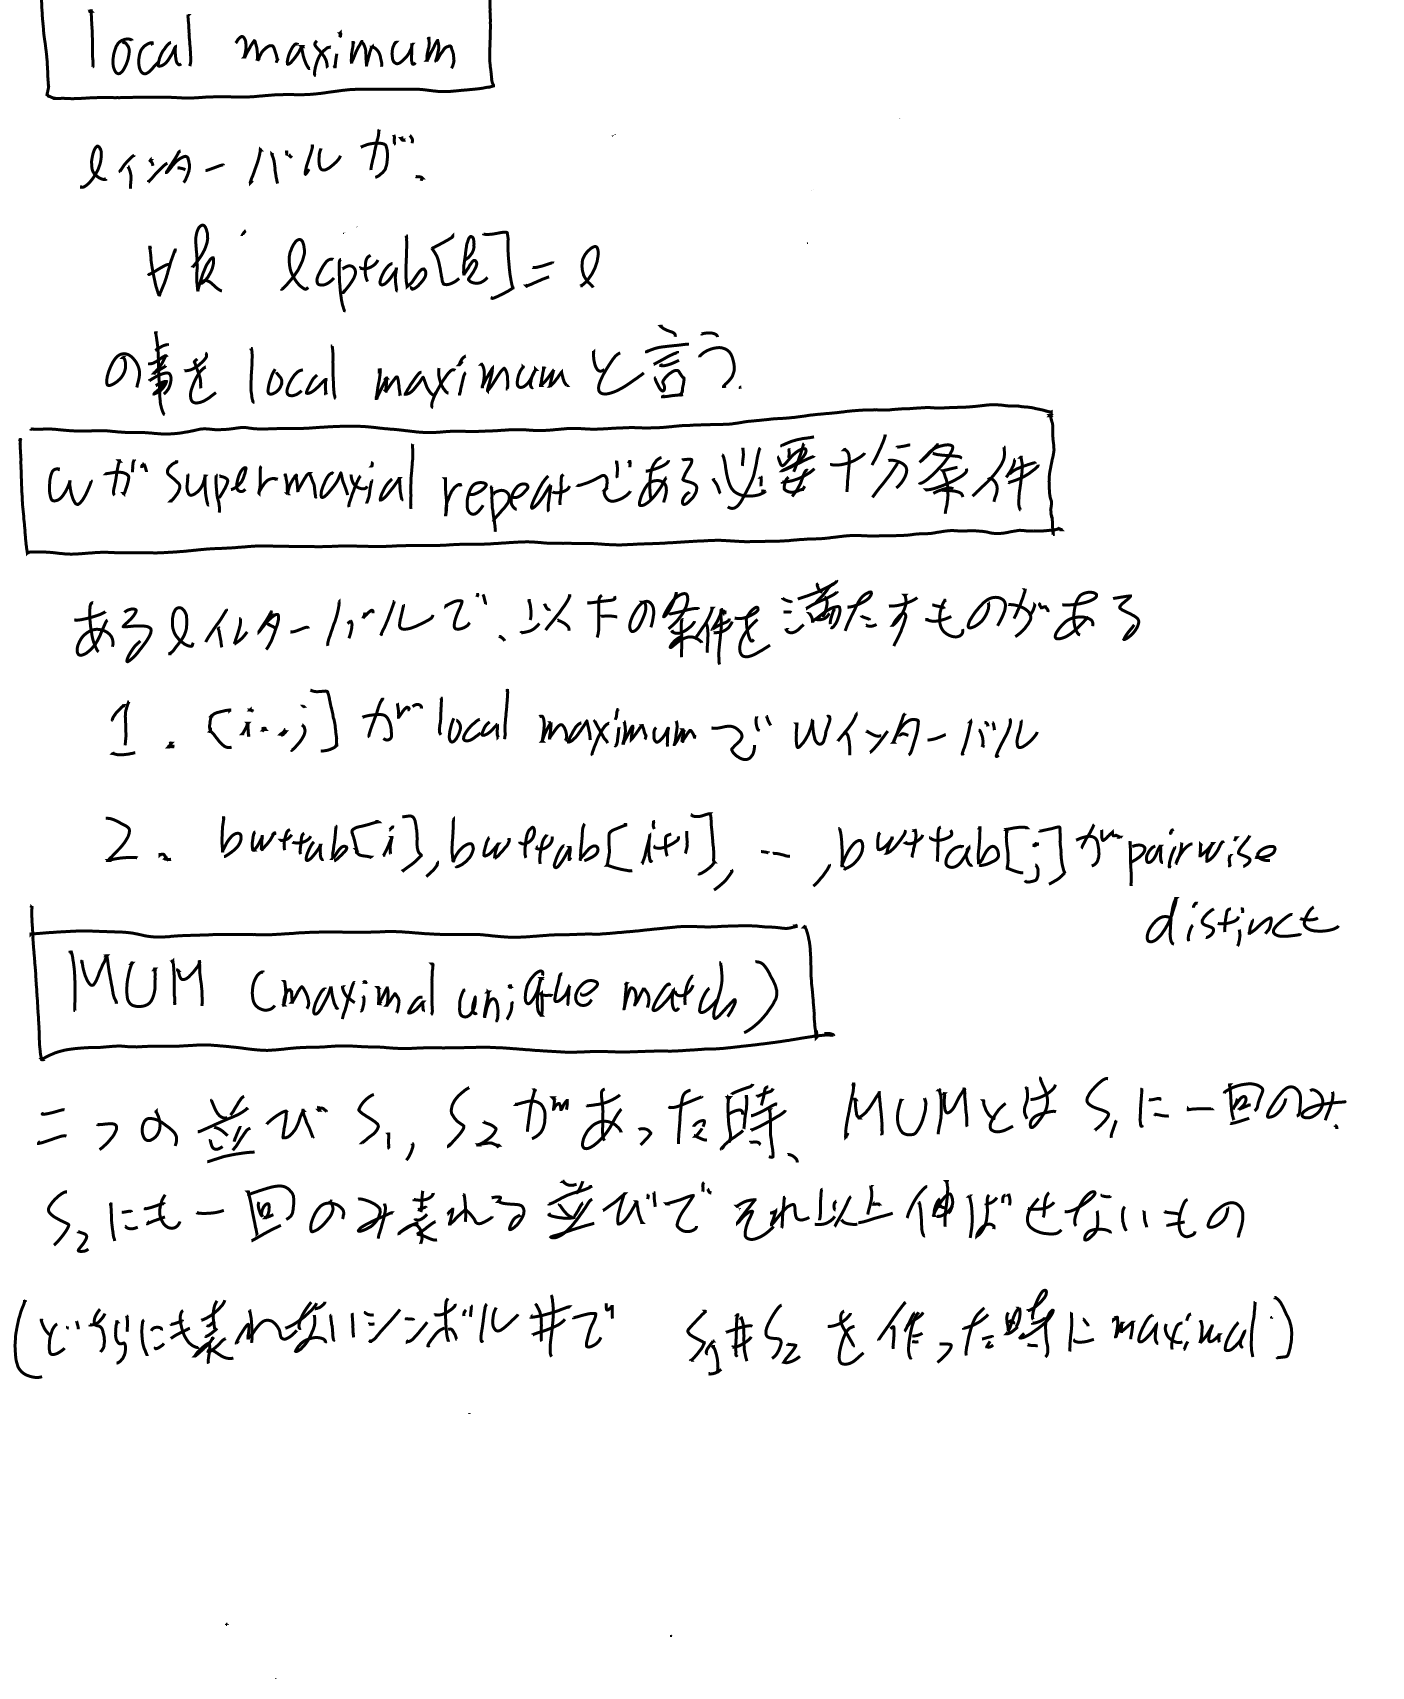 local maximum
ℓインターバルが、
∀k lcptab[k]=ℓ
の事を local maximumと言う。
ωがsupermaxial repeatである必要十分条件
あるℓインターバルで、以下の条件を満たすものがある
1. [i..j]がlocal maximumでωインターバル
2. bwttab[i],bwttab[i+1], … ,bwttab[j]がpairwise
distinct
MUM (maximal unique match)
二つの並び S₁, S₂があった時、MUMとは S₁に一回のみ
S₂にも一回のみ表れる並びでそれ以上伸ばせないもの
(どちらにも表れないシンボル#で S₁#S₂を作った時にmaximal)